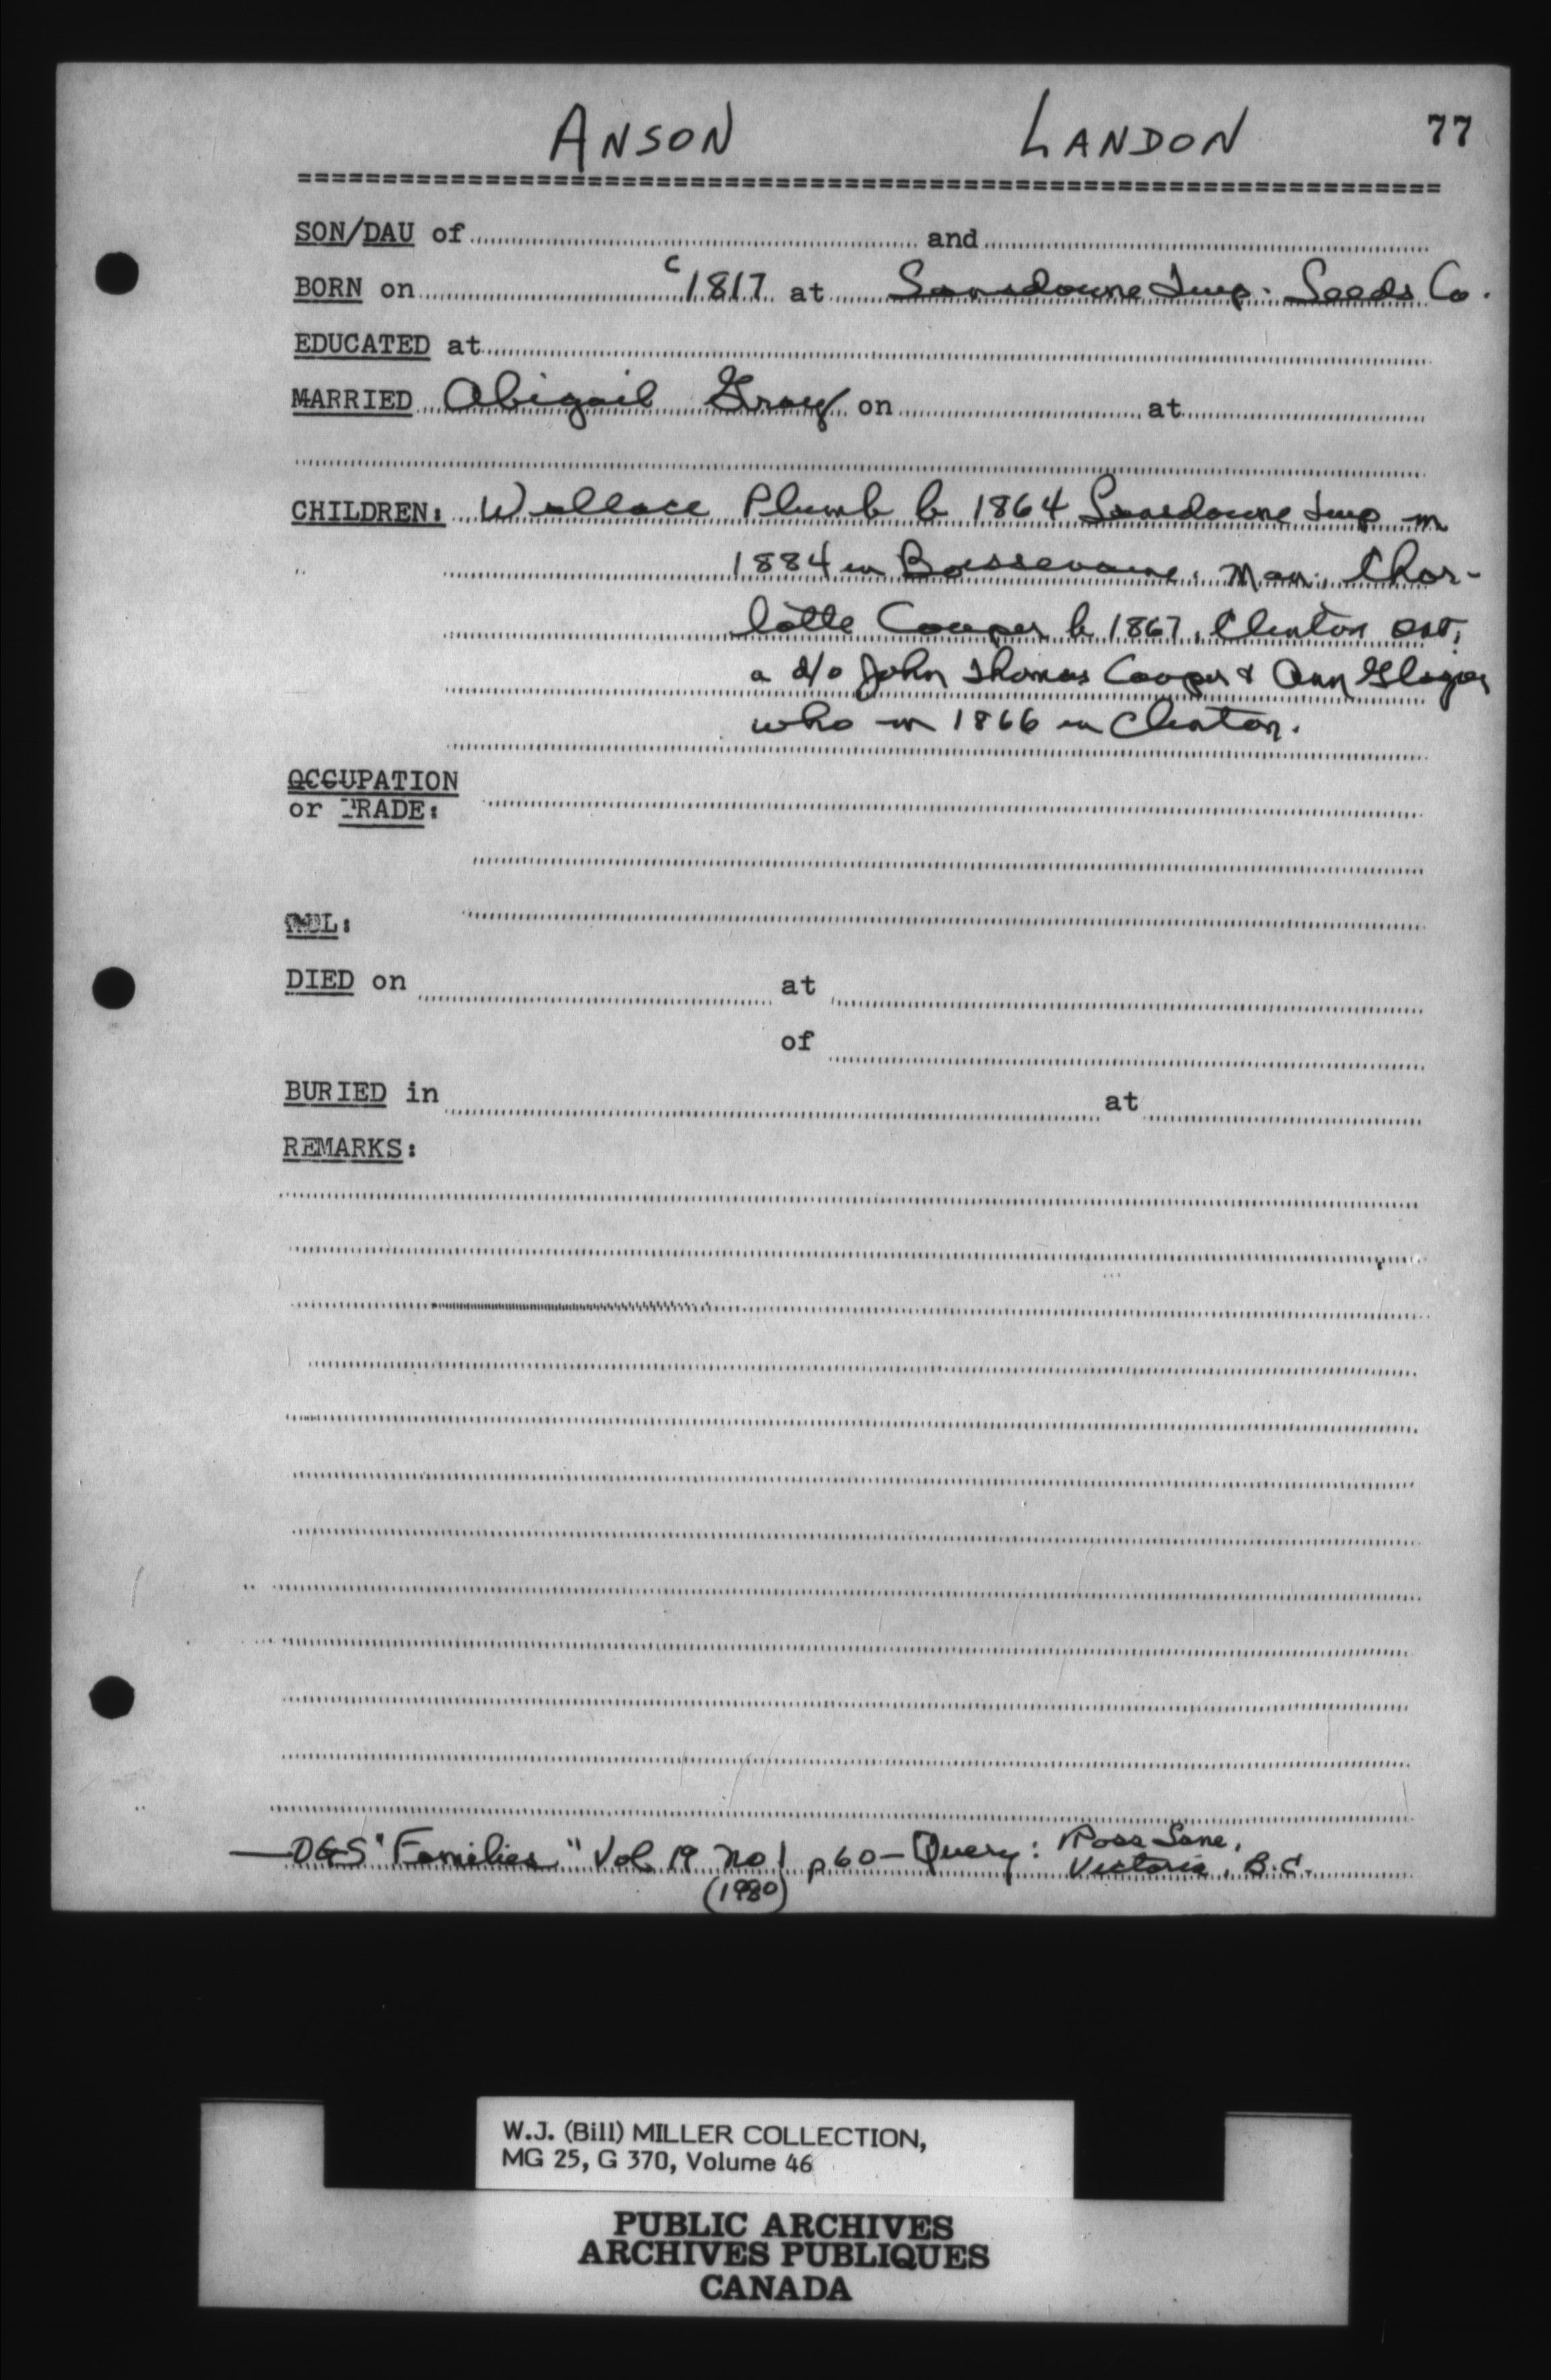 ANSON LANDON 77
SON/DAU of and
BORN on c1817 at Lansdowne Twp. Leeds Co.
EDUCATED at
MARRIED Abigail Gray on at
CHILDREN: Wallace Plumb b 1864 Lansdowne Twp m
1884 in Boissevaine, Man., Char-
lotte Cooper b 1867, Clinton Ont;
a d/o John Thomas Cooper & Ann
who m 1866 in Clinton.
OCCUPATION
or TRADE:
REL:
DIED on at
of
BURIED in at
REMARKS:
— OGS "Families" Vol 19 no 1 p 60 — Query: Ross Lane,
Victoria, B.C.
(1980)
W.J. (Bill) MILLER COLLECTION,
MG 25, G 370, Volume 46
PUBLIC ARCHIVES
ARCHIVES PUBLIQUES
CANADA